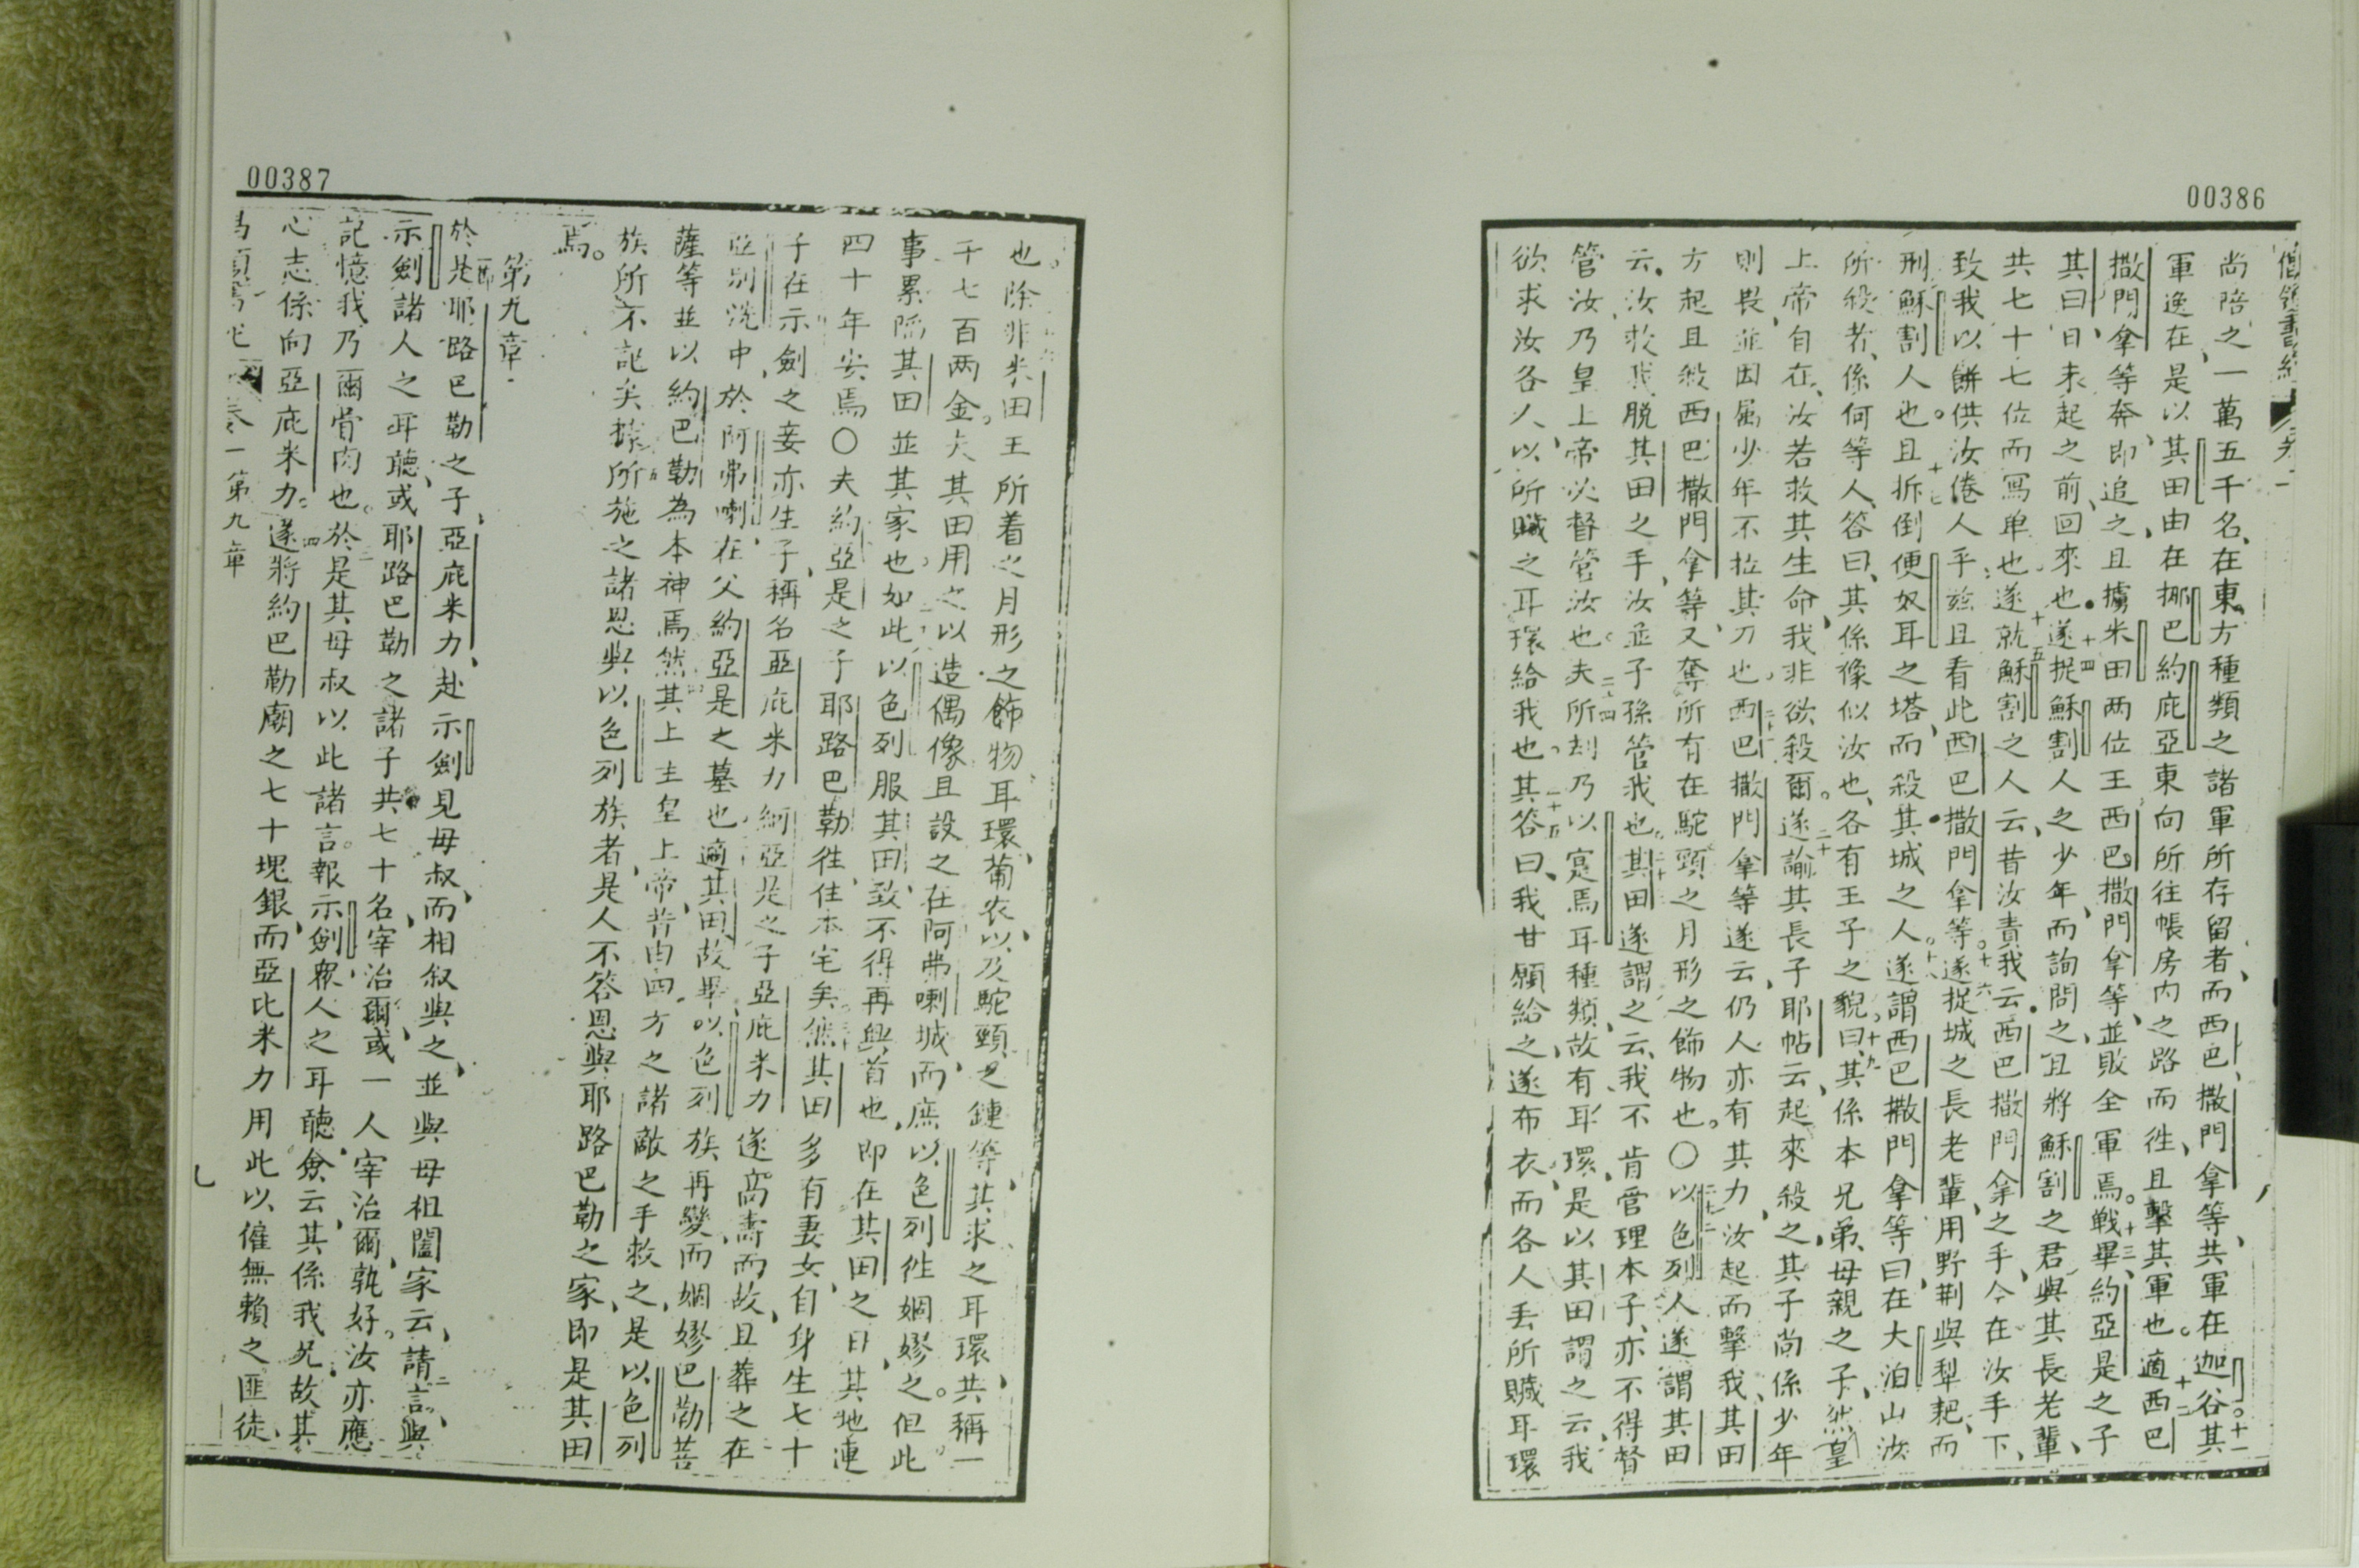 00386
尚陪之一萬五千名、在東方種類之諸軍所存留者、而西巴、撒門拿等、共軍在迦谷其
軍逸在、是以其田由在挪巴、約庇亞東向所往帳房内之路而徃、且擊其軍也。適西巴
撒門拿等奔、即追之、且擄米田两位王西巴、撒門拿等、並敗全軍焉。戰畢、約亞是之子
其曰、日未起之前、回來也遂捉穌割人之少年、而詢問之、且將穌割之君與其長老輩、
共七十七位而寫单也遂就穌割之人云、昔汝責我云、西巴撒門拿之手、今在汝手下、
致我以餅供汝倦人乎茲且看此西巴撒門拿等。遂捉城之長老輩、用野荆與犁耙、而
刑穌割人也。且拆倒便奴耳之塔、而殺其城之人。遂謂西巴撒門拿等曰、在大泊山汝
所殺者、係何等人、答曰、其係像似汝也、各有王子之貌。曰、其係本兄弟、母親之子、然皇
上帝自在、汝若救其生命、我非欲殺爾。遂諭其長子耶帖云、起來殺之、其子尚係少年
則畏、並因属少年不拉其刀也。西巴撒門拿等遂云、仍人亦有其力、汝起而擊我、其田
方起且殺西巴撒門拿等、又奪所有在駝頸之月形之飾物也。〇以色列人遂謂其田
云、汝救我脱其田之手、汝並子孫管我也。其田遂謂之云、我不肯管理本子、亦不得督
管汝、乃皇上帝以督管汝也。夫所刦乃以寔焉耳種類、故有耳環、是以其田謂之云、我
欲求汝各人、以所贓之耳環給我也。其答曰、我甘願給之、遂布衣、而各人丢所贓耳環
00387
也。除非米田王所着之月形之飾物、耳環、葡衣、以及駝頸之鏈等、其求之耳環、共稱一
千七百两金。夫其田用之以造偶像、且設之在阿弗喇城、而庶以色列徃婣嫪之。但此
事累陷其田並其家也。如此以色列服其田、致不得再興首也、即在其田之日、其地連
四十年安焉〇夫約亞是之子耶路巴勒、徃住本宅矣。然其田多有妻女、自身生七十
子在示劍、之妾亦生子、稱名亞庇米力約亞是之子亞庇米力遂高壽而故、且葬之在
亞别洗中、於阿弗喇、在父約亞是之墓也、適其田故畢、以色列族再變、而婣嫪巴勒菩
薩等、並以約巴勒為本神焉。然其上主皇上帝、昔由四方之諸敵之手救之、是以色列
族所不記矣。據所施之諸恩與以色列族者、是人不答恩與耶路巴勒之家、即是其田
焉。
第九章
於是耶路巴勒之子、亞庇米力、赴示劍見母叔、而相叙與之、並與母祖闔家云、請言與
示劍諸人之耳聽、或耶路巴勒之諸子共七十名、宰治爾、或一人宰治爾、孰好。汝亦應
記憶我乃爾骨肉也。於是其母叔以此諸言報示劍衆人之耳聽、僉云、其係我兄、故其
心志係向亞庇米力。遂將約巴勒廟之七十塊銀、而亞比米力用此以僱無賴之匪徒、
卷一第九章